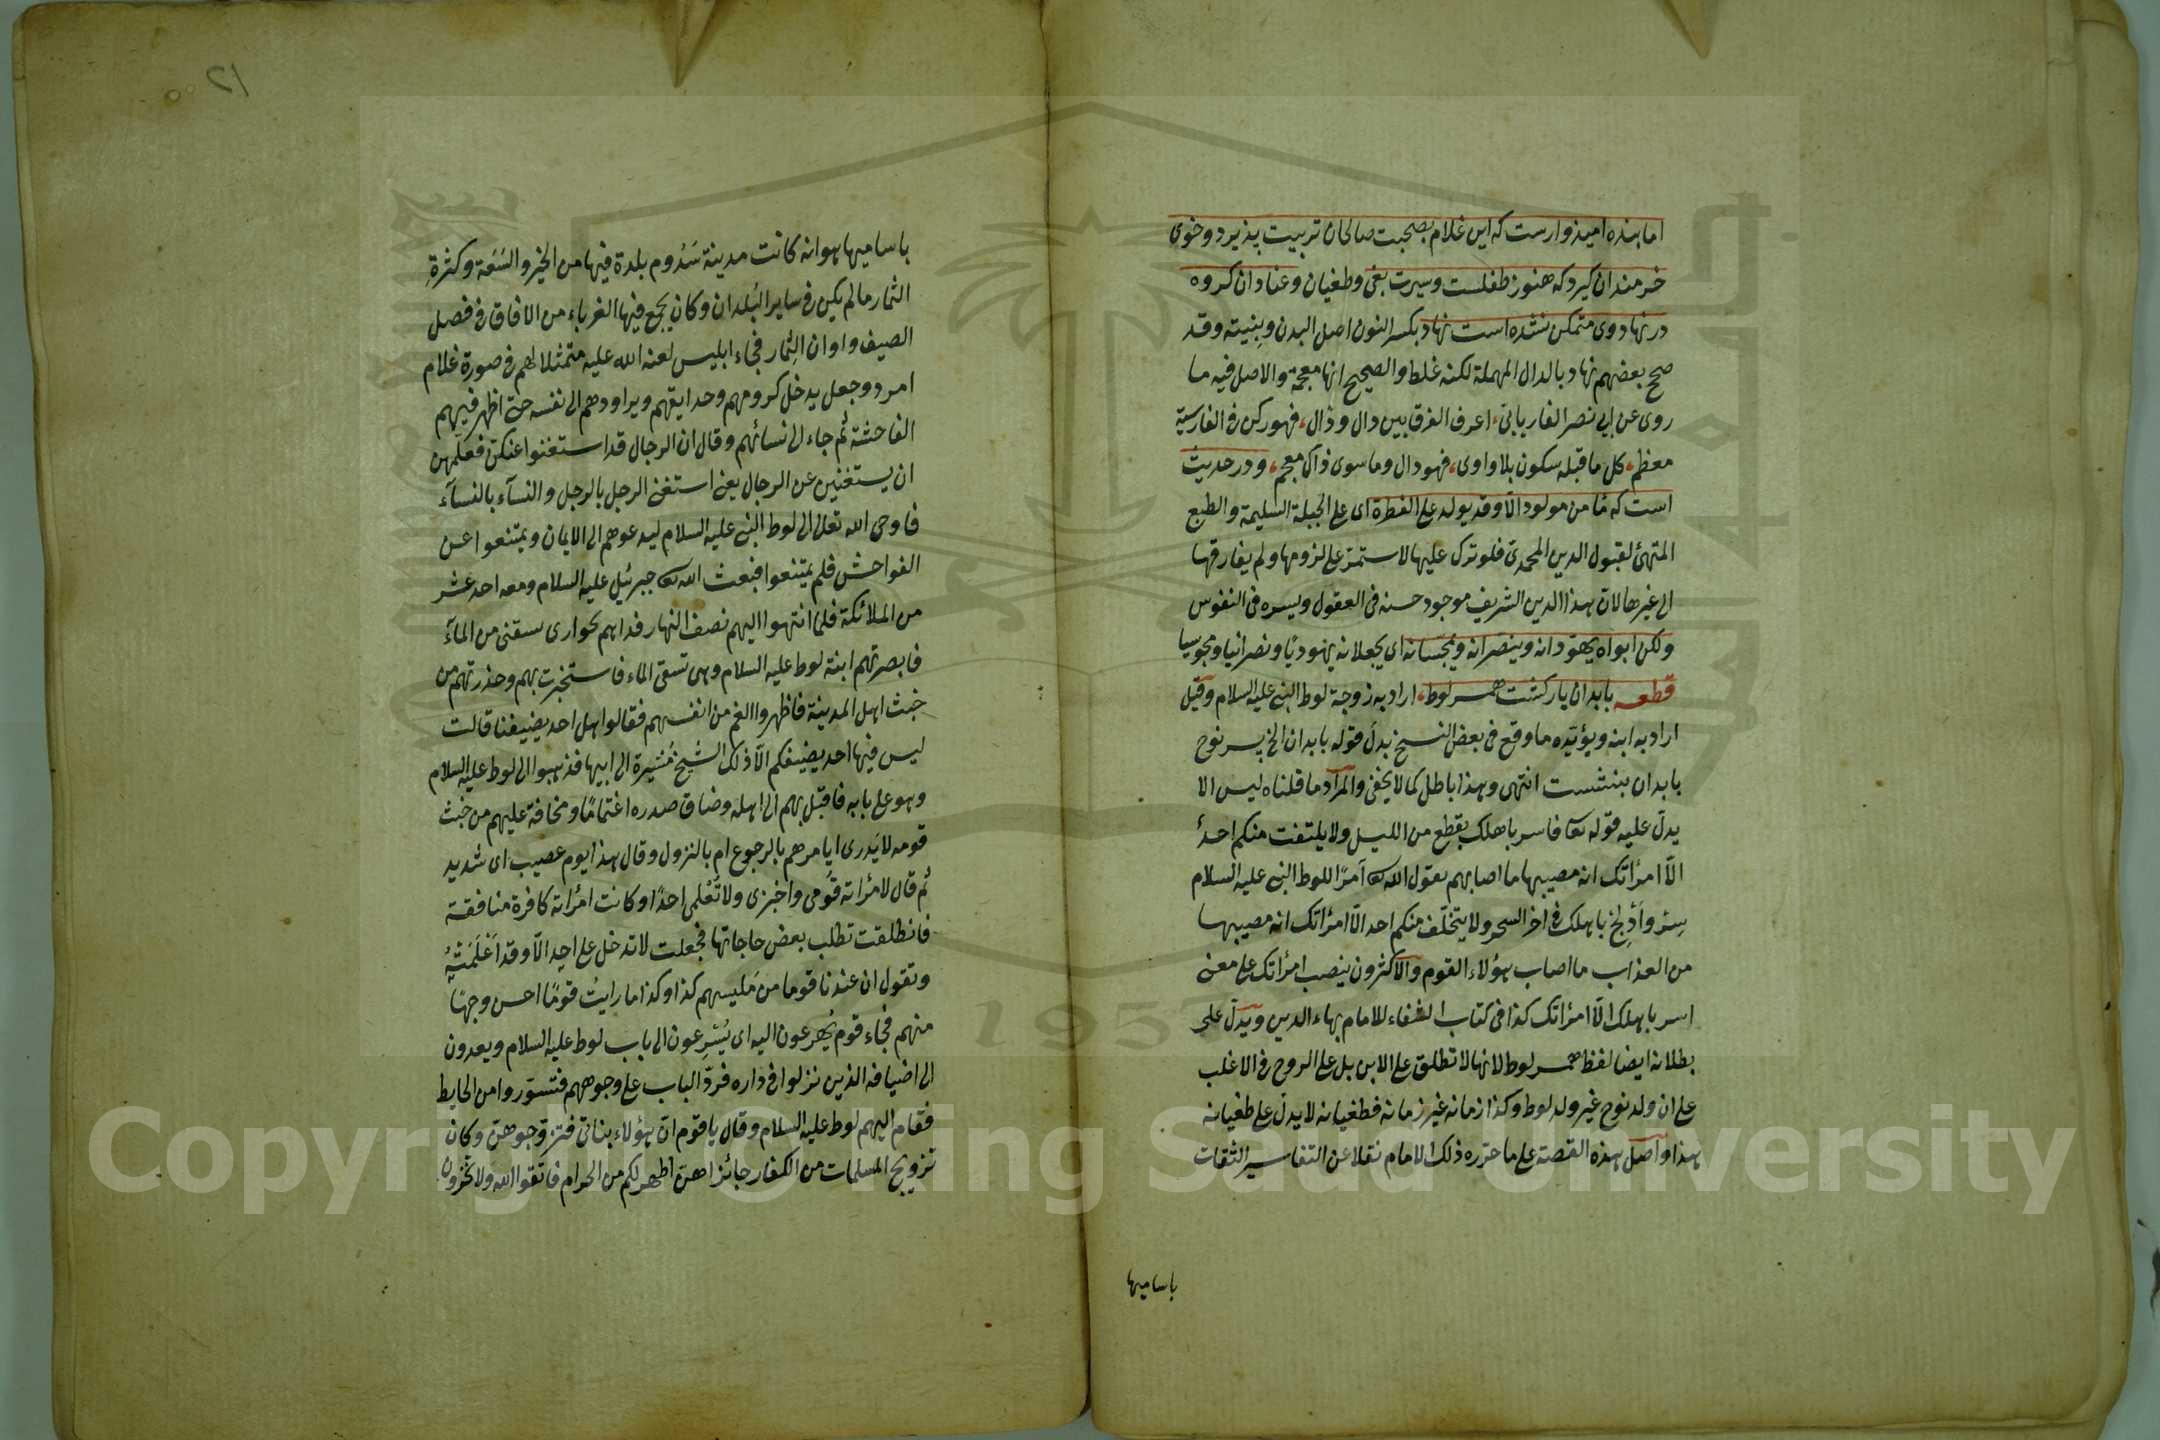 اما بنده اميذوارست كه اين غلام بصحبت صالحان تربيت پذيرد وخوى
خرمندان كيرد كه هنوز طفلست وسيرت بغى وطغيان وعنادان كروه
در نهاد وى متمكن نشده است نهاد بكسر النون اصل البدن وبنيته وقد
صح بعضهم نهاد بالدال المهملة لكنه غلط والصحيح انها معجمة والاصل فيه ما
روى عن ابى نصر الفاريابى اعرف الفرق بين دال وذال فهو ركن فى الفارسية
معظم كل ما قبله سكون بلا واوى فهو دال وما سوى ذاك معجم ودر حديث
است كه مَا من مولود الّا وقد يولد على الفطرة اى على الجبلة السليمة والطبع
المتهئ لقبول الدين المحمدى فلو ترك عليها لاستمرّ على لزومها ولم يفارقها
الى غيرها لان هذا الدين الشريف موجود حسنه فى العقول ويسره فى النفوس
ولكن ابواه يهوّدانه وينصرانه ويمجّسانه اى يجعلانه يهوديًا ونصرانيا ومجوسيا
قطعه بابدان يار كشت همسر لوط اراد به زوجة لوط النبى عليه السلام وقيل
اراد به ابنه ويؤيّده ما وقع فى بعض النسخ بدل قوله بابدان الخ پسر نوح
بابدان بنشست انتهى وهذا باطل كما لا يخفى والمراد ما قلناه ليس الا
يدلّ عليه قوله تعا فاسر باهلك بقطع من الليل ولا يلتفت منكم احدٌ
الّا امرأتك انه مصيبها ما اصابهم يقول الله تعا آمرًا للوط النبى عليه السلام
سِرْ وأَدْلِجْ باهلك فى اخر السحر ولا يتخلّف منكم احد الّا امرأتك انه مصيبها
من العذاب ما اصاب هؤلاء القوم والاكثرون ينصب امرأتك على معنى
اسر باهلك الّا امرأتك كذا فى كتاب الشفاء للامام بهاء الدين ويدلّ على
بطلانه ايضا لفظ همسر لوط لانها لا تطلق على الابن بل على الروح فى الاغلب
على ان ولد نوح غير ولد لوط وكذا زمانه غير زمانه فطغيانه لا يدلّ على طغيانه
هذا واصل هذه القصة على ما حرّره ذلك الامام نقلا عن التفاسير الثقات
باساميها
باساميها هو انه كانت مدينة سَدُوم بلدة فيها من الخير والسَّعَة وكثرةِ
الثمار ما لم يكن فى ساير البُلدان وكان يجمع فيها الغرباء من الافاق فى فصل
الصيف واوان الثمار فجاء ابليس لعنه الله عليه متمثلا لهم فى صورة غلام
امرد وجعل يدخل كرومهم وحدايقهم ويراودهم الى نفسه حتى اظهر فيهم
الفاحشة ثم جاء الى نسائهم وقال ان الرجال قد استغنوا عنكنّ فعلّمهنّ
ان يستغنين عن الرجال يعنى استغنى الرجل بالرجل والنسآء بالنسآء
فاوحى الله تعالى الى لوط النبى عليه السلام ليدعوهم الى الايمان ويمتنعوا عن
الفواحش فلم يمتنعوا فبعث الله تعا جبرئيل عليه السلام ومعه احد عشر
من الملائكة فلما انتهوا اليهم نصف النهار فداهم بجوارى سقنى من المآء
فابصرتهم ابنة لوط عليه السلام وهى تسقى الماء فاستخبرت بهم وحذرتهم من
خبث اهل المدينة فاظهروا الغم من انفسهم فقالوا هل احد يضيفنا قالت
ليس فيها احد يضيفكم الّا ذلك الشيخ مُشيرة الى ابيها فذهبوا الى لوط عليه السلام
وهو على بابه فاقبل بهم الى اهله وضاق صدره اغتمامًا ومخافة عليهم من خبث
قومه لا يَدرى ايا مرهم بالرجوع ام بالنزول وقال هذا يوم عصيب اى شديد
ثم قال لامرأته قُومى واخبزى ولا تُعْلمى احدًا وكانت امرأته كافرة منافقة
فانطلقت تطلب بعض حاجاتها فجعلت لا تدخل على احدٍ الّا وقد اَعْلَمَتْهُ
وتقول ان عندنا قوما من مَلبسهم كذا وكذا ما رايتُ قومًا احسن وجهًا
منهم فجاء قوم يُهرعون اليه اى يُسْرِعون الى باب لوط عليه السلام ويعدون
الى اضيافه الذين نزلوا فى داره فردّ الباب على وجوههم فتسوّروا من الحايط
فقام اليهم لوط عليه السلام وقال يا قوم انّ هؤلاء بناتى فتزوّجوهنّ وكان
تزويج المسلمات من الكفار جائزا هنّ اطهر لكم من الحرام فاتقوا الله ولا تخزون